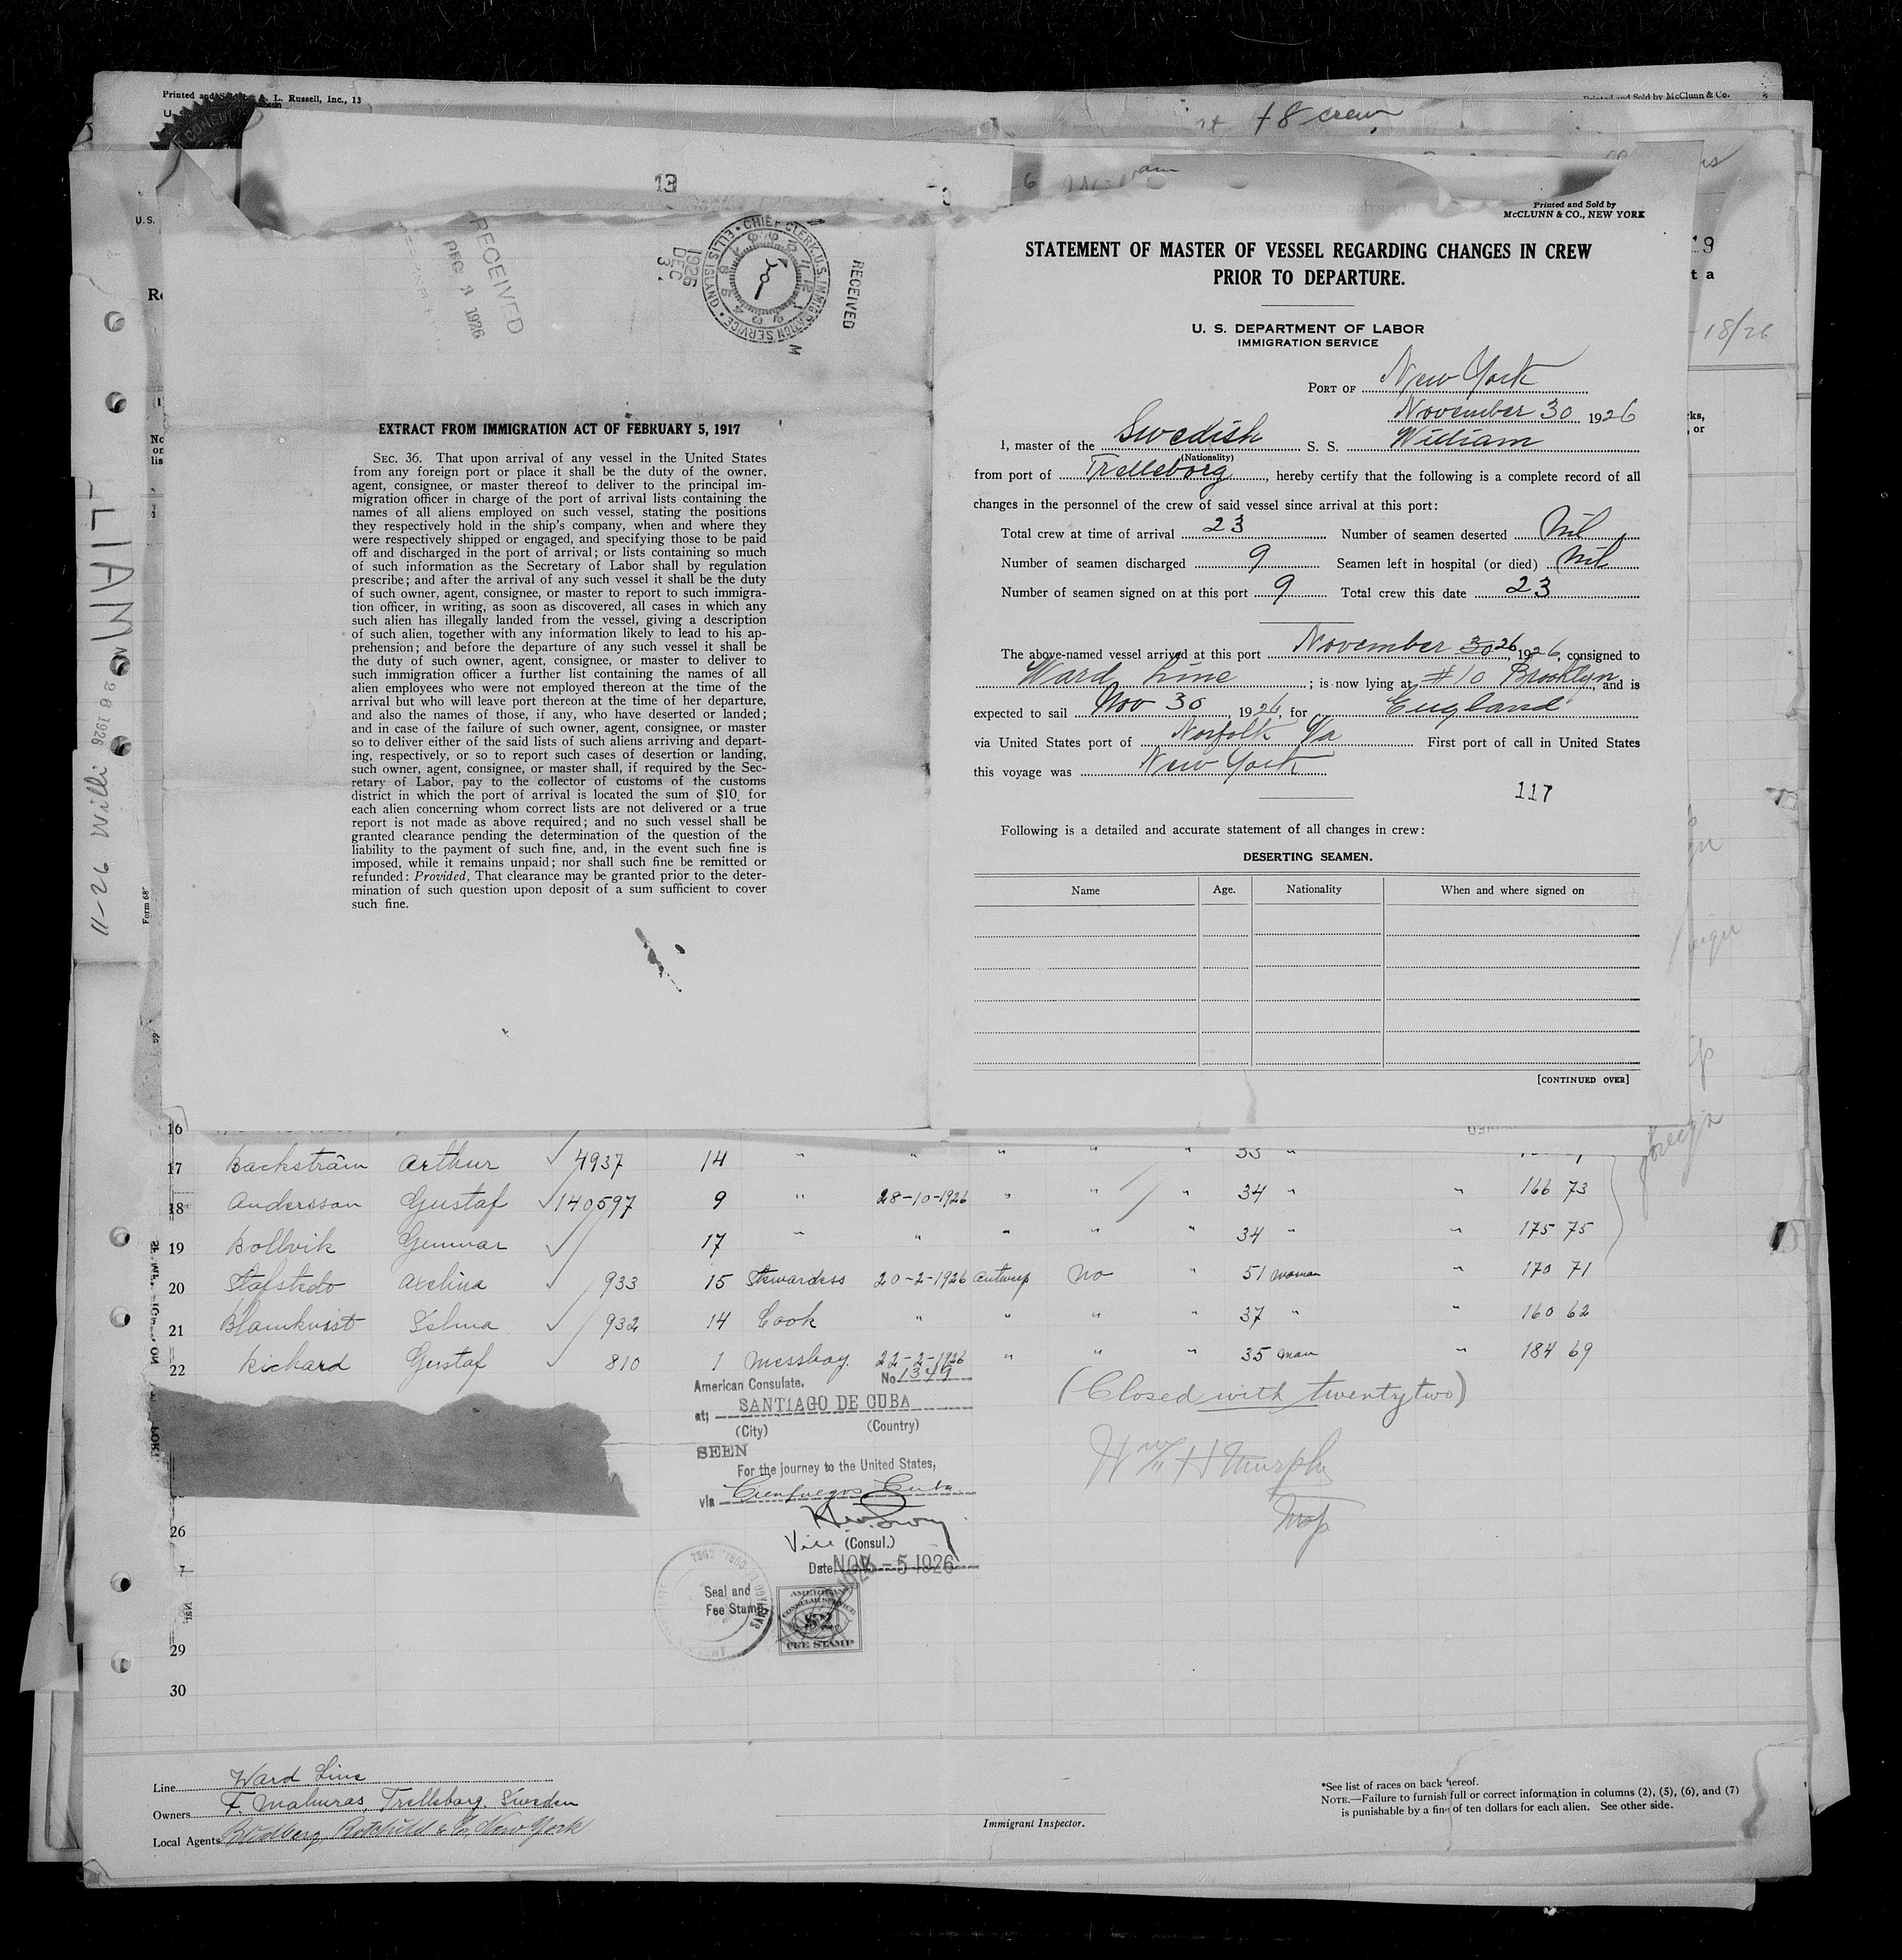 Printed and Sold by A. L. Russell, Inc., 13
Printed and Sold by McClunn & Co.
+8 crew
13
RECEIVED
DEC 3 1926
CHIEF CLERK, U.S. IMMIGRATION SERVICE • ELLIS ISLAND •
1926
DEC
3
RECEIVED
M
EXTRACT FROM IMMIGRATION ACT OF FEBRUARY 5, 1917
SEC. 36. That upon arrival of any vessel in the United States
from any foreign port or place it shall be the duty of the owner,
agent, consignee, or master thereof to deliver to the principal im-
migration officer in charge of the port of arrival lists containing the
names of all aliens employed on such vessel, stating the positions
they respectively hold in the ship's company, when and where they
were respectively shipped or engaged, and specifying those to be paid
off and discharged in the port of arrival; or lists containing so much
of such information as the Secretary of Labor shall by regulation
prescribe; and after the arrival of any such vessel it shall be the duty
of such owner, agent, consignee, or master to report to such immigra-
tion officer, in writing, as soon as discovered, all cases in which any
such alien has illegally landed from the vessel, giving a description
of such alien, together with any information likely to lead to his ap-
prehension; and before the departure of any such vessel it shall be
the duty of such owner, agent, consignee, or master to deliver to
such immigration officer a further list containing the names of all
alien employees who were not employed thereon at the time of the
arrival but who will leave port thereon at the time of her departure,
and also the names of those, if any, who have deserted or landed;
and in case of the failure of such owner, agent, consignee, or master
so to deliver either of the said lists of such aliens arriving and depart-
ing, respectively, or so to report such cases of desertion or landing,
such owner, agent, consignee, or master shall, if required by the Sec-
retary of Labor, pay to the collector of customs of the customs
district in which the port of arrival is located the sum of $10 for
each alien concerning whom correct lists are not delivered or a true
report is not made as above required; and no such vessel shall be
granted clearance pending the determination of the question of the
liability to the payment of such fine, and, in the event such fine is
imposed, while it remains unpaid; nor shall such fine be remitted or
refunded: Provided, That clearance may be granted prior to the deter-
mination of such question upon deposit of a sum sufficient to cover
such fine.
Printed and Sold by
McCLUNN & CO., NEW YORK
STATEMENT OF MASTER OF VESSEL REGARDING CHANGES IN CREW
PRIOR TO DEPARTURE.
U. S. DEPARTMENT OF LABOR
IMMIGRATION SERVICE
PORT OF New York
November 30 1926
I, master of the Swedish S. S. William
(Nationality)
from port of Trelleborg, hereby certify that the following is a complete record of all
changes in the personnel of the crew of said vessel since arrival at this port:
Total crew at time of arrival 23 Number of seamen deserted Nil
Number of seamen discharged 9 Seamen left in hospital (or died) Nil
Number of seamen signed on at this port 9 Total crew this date 23
The above-named vessel arrived at this port November 30 26, 1926, consigned to
Ward Line; is now lying at #10 Brooklyn, and is
expected to sail Nov 30 1926, for England
via United States port of Norfolk Va First port of call in United States
this voyage was New York
117
Following is a detailed and accurate statement of all changes in crew:
DESERTING SEAMEN.
Name Age. Nationality When and where signed on
[CONTINUED OVER]
-18/26
LIAM
26 1926
11-26 Willi
16
17 Backström Arthur ✓ 4937 14 " " " " " 33 "
18 Andersson Gustaf ✓ 140597 9 " 28-10-1926 " " " 34 " " 166 73
19 Bollvik Gunnar ✓ 17 " " " " " 34 " " 175 75
20 Stafstedo Axelina ✓ 933 15 Stewardess 20-2-1926 Antwerp No " 51 woman " 170 71
21 Blamkvist Selma ✓ 932 14 Cook " " " " 37 " " 160 62
22 Richard Gustaf ✓ 810 1 Messboy. 22-2-1926 " " " 35 man " 184 69
foreign
American Consulate. No 1349
at; SANTIAGO DE CUBA
(City) (Country)
SEEN
For the journey to the United States,
via Cienfuegos Cuba
Vice (Consul.)
Date NOV -5 1926
Seal and
Fee Stamp
AMERICAN
CONSULAR SERVICE
$2
FEE STAMP
(Closed with twentytwo)
Wm H Murphy
Insp
26
7
29
30
Line Ward Line
Owners F. Malmros, Trelleborg. Sweden
Local Agents Bödberg, Rotchild & Co, New York
Immigrant Inspector.
*See list of races on back hereof.
NOTE.—Failure to furnish full or correct information in columns (2), (5), (6), and (7)
is punishable by a fine of ten dollars for each alien. See other side.